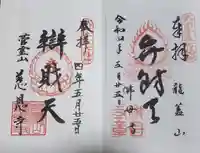 奉拝
龍蓋山
弁財天
令和四年五月廿五日
佛母寺
奉拝
四年五月廿五日
辯財天
慈恩寺